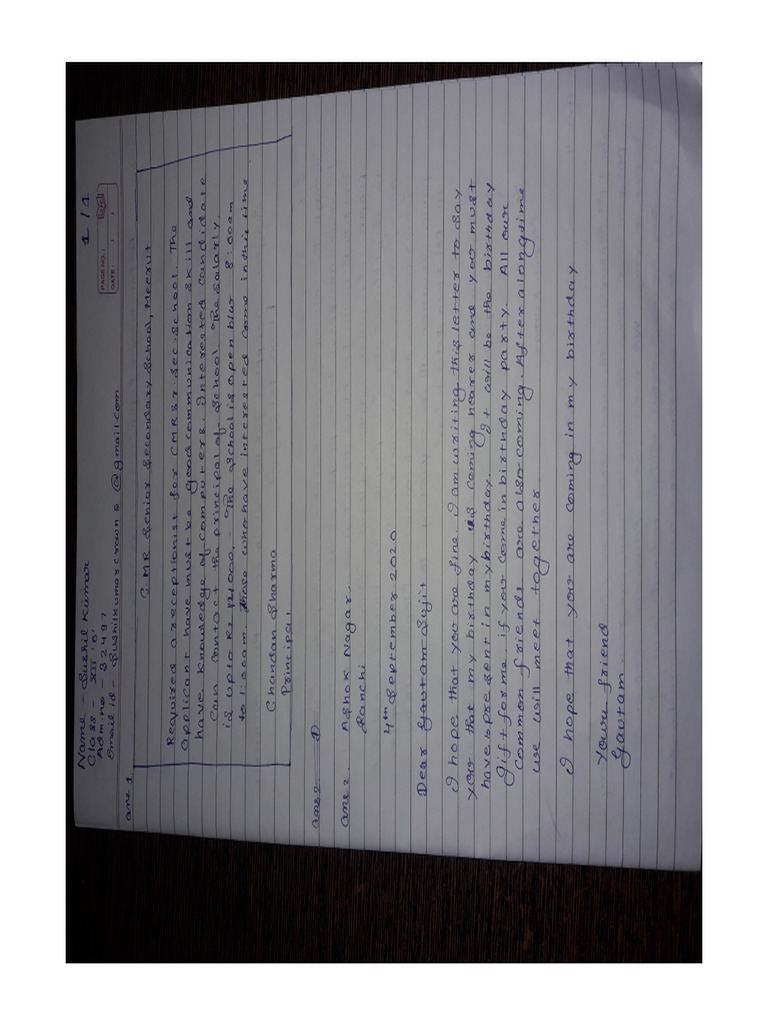 1/1
PAGE NO.:
DATE: / /
Name - Sushil Kumar
Class - XII 'D'
Adm.no - 32497
Email id - Sushilkumarcrown6@gmail.com
ans 1
C.MR Senior Secondary School, Meerut
Required a receptionist for CMR Sr. Sec. School. The
applicant have must be good communication skill and
have knowledge of computers. Interested candidate
can contact the principal of school. The Salarly
is upto Rs 14000. The School is open blur 8:00am
to 1:00am. Those who have interested come in this time
Chandan Sharma
Principal
ans 2
ans 2. Ashok Nagar
Ranchi
4th September 2020
Dear Gautam Sujit
I hope that you are fine. I am writing this letter to say
you that my birthday is coming nearer and you must
have present in my birthday. It will be the birthday
gift for me if you come in birthday party. All our
common friends are also coming. After alongtime
we will meet together
I hope that you are coming in my birthday
Your friend
Gautam.